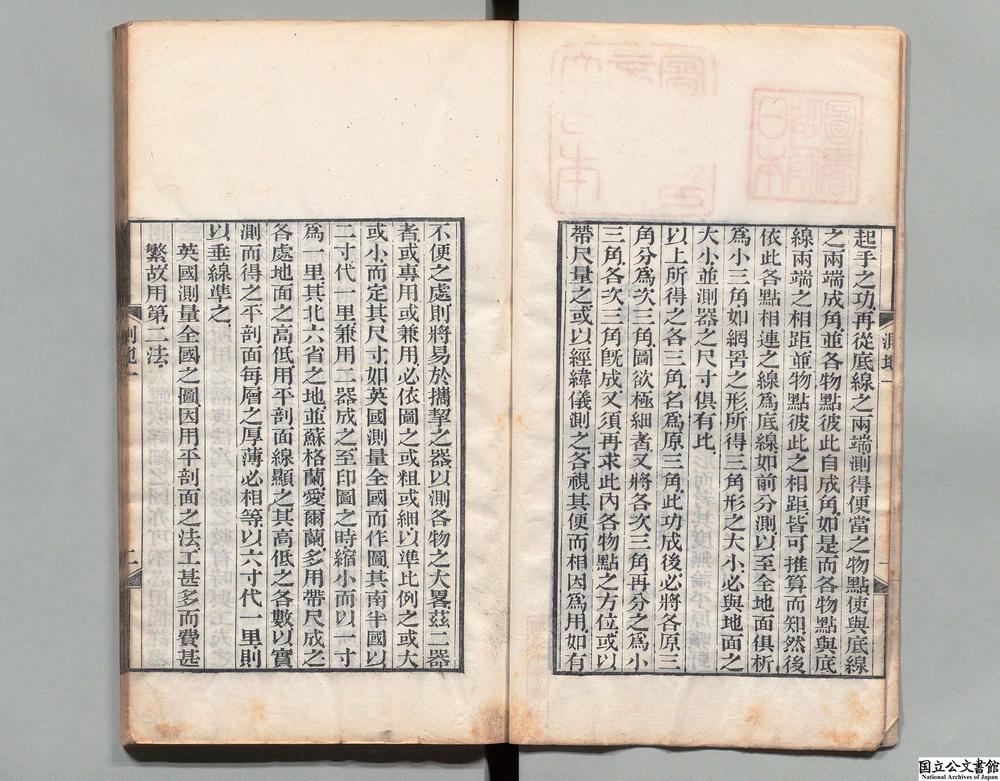 起手之功再從底線之兩端測得便當之物點使與底線
之兩端成角並各物點彼此自成角如是而各物點與底
線兩端之相距並物點彼此之相距皆可推算而知然後
依此各點相連之線爲底線如前分測以至全地面俱析
爲小三角如網罟之形所得三角形之大小必與地面之
大小並測器之尺寸俱有比
以上所得之各三角名爲原三角此功成後必將各原三
角分爲次三角圖欲極細者又將各次三角再分之爲小
三角各次三角旣成又須再求此內各物點之方位或以
帶尺量之或以經緯儀測之各視其便而相因爲用如有
測地一
不便之處則將易於攜挈之器以測各物之大畧茲二器
者或專用或兼用必依圖之或粗或細以準比例之或大
或小而定其尺寸如英國測量全國而作圖其南半國以
二寸代一里兼用二器成之至印圖之時縮小而以一寸
爲一里其北六省之地並蘇格蘭愛爾蘭多用帶尺成之
各處地面之高低用平剖面線顯之其高低之各數以實
測而得之平剖面每層之厚薄必相等以六寸代一里則
以垂線準之
英國測量全國之圖因用平剖面之法工甚多而費甚
繁故用第二法
測地一
二
圖書
日本
国立公文書館
National Archives of Japan